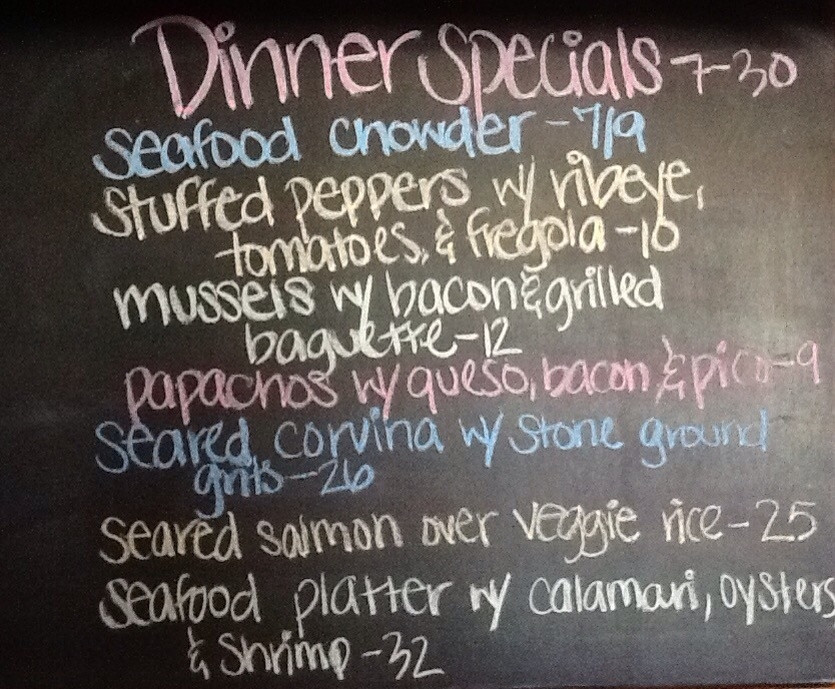 Dinner Specials 7-30
Seafood chowder - 7/9
Stuffed peppers w/ ribeye,
tomatoes, & fregola - 10
mussels w/ bacon & grilled
baguette - 12
papachos w/ queso, bacon & pico - 9
Seared corvina w/ Stone ground
grits - 26
Seared salmon over veggie rice - 25
Seafood platter w/ calamari, oysters
& Shrimp - 32